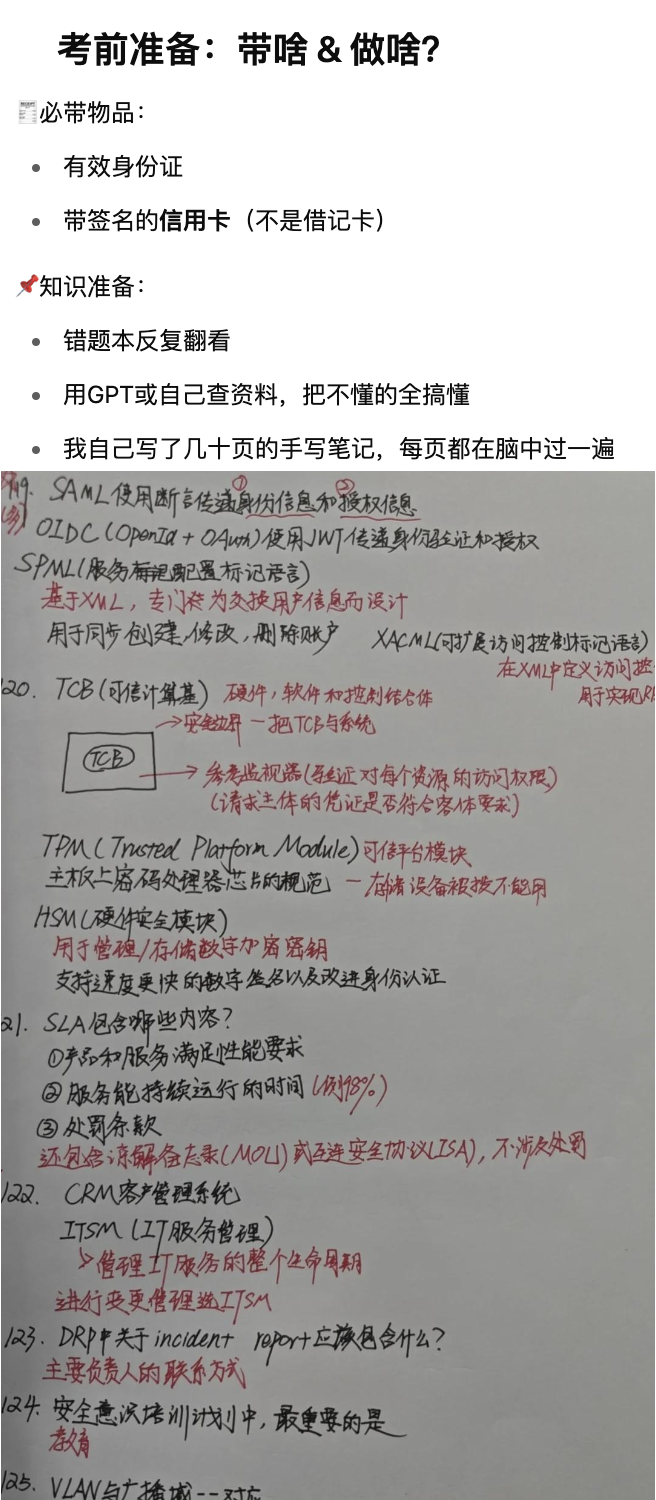 考前准备：带啥 & 做啥？
必带物品：
• 有效身份证
• 带签名的信用卡（不是借记卡）
知识准备：
• 错题本反复翻看
• 用GPT或自己查资料，把不懂的全搞懂
• 我自己写了几十页的手写笔记，每页都在脑中过一遍
119. SAML使用断言传递①身份信息和②授权信息
OIDC（OpenId + OAuth）使用JWT传递身份验证和授权
SPML（服务配置标记语言）
基于XML，专门为交换用户信息而设计
用于同步创建，修改，删除账户 XACML（可扩展访问控制标记语言）
在XML中定义访问控
用于实现RB
120. TCB（可信计算基） 硬件，软件和控制结合体
→安全边界 — 把TCB与系统
TCB
→参考监视器（验证对每个资源的访问权限）
（请求主体的凭证是否符合客体要求）
TPM（Trusted Platform Module）可信平台模块
主板上密码处理器芯片的规范 — 存储设备被拔不能用
HSM（硬件安全模块）
用于管理/存储数字加密密钥
支持速度更快的数字签名以及改进身份认证
21. SLA包含哪些内容？
①产品和服务满足性能要求
②服务能持续运行的时间（98%）
③处罚条款
还包含谅解备忘录（MOU）或互连安全协议（ISA），不涉及处罚
122. CRM客户管理系统
ITSM（IT服务管理）
↳管理IT服务的整个生命周期
进行变更管理选ITSM
123. DRP中关于incident report应该包含什么？
主要负责人的联系方式
124. 安全意识培训计划中，最重要的是
教育
125. VLAN与广播域一一对应